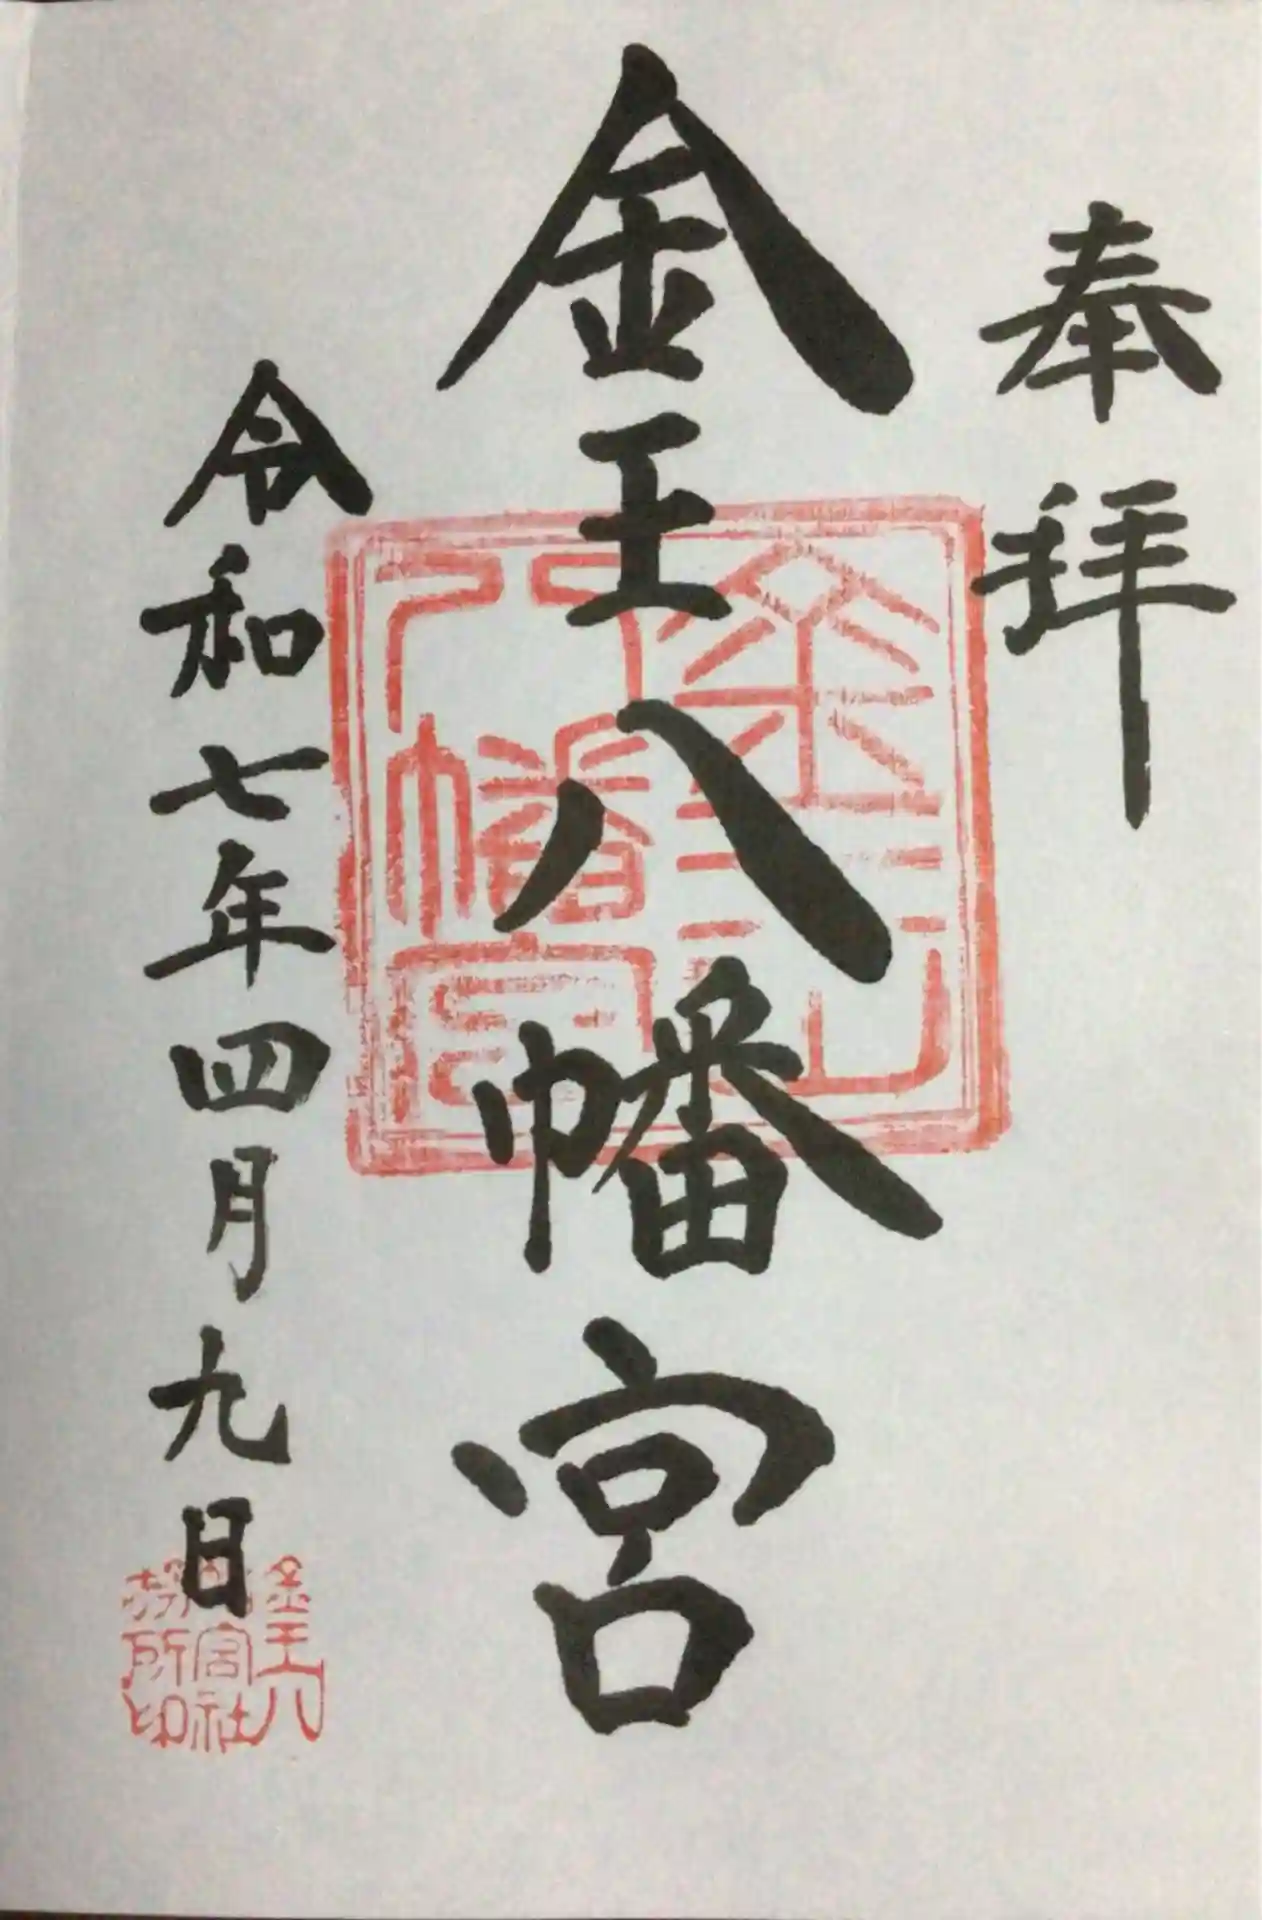 奉拝
金王八幡宮
金王八幡宮
令和七年四月九日
金王八
幡宮社
務所印